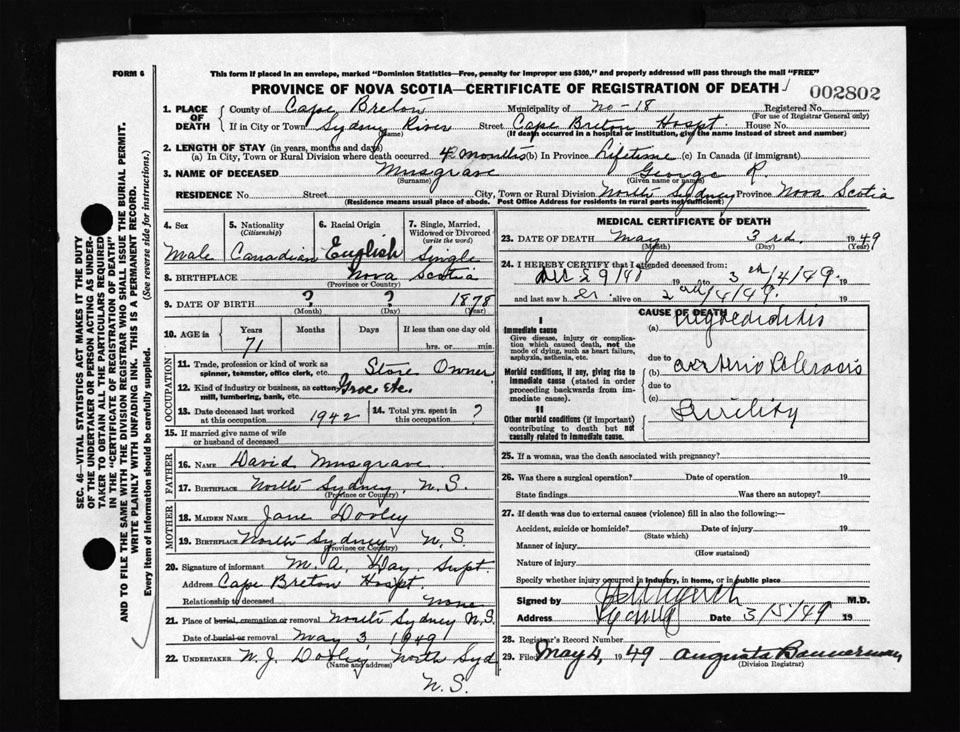 FORM 6
This form if placed in an envelope, marked "Dominion Statistics—Free, penalty for improper use $300," and properly addressed will pass through the mail "FREE"
PROVINCE OF NOVA SCOTIA—CERTIFICATE OF REGISTRATION OF DEATH
002802
1. PLACE OF DEATH
County of Cape Breton Municipality of No-18 Registered No.
(For use of Registrar General only)
If in City or Town Sydney River Street Cape Breton Hospt. House No.
(Name) (If death occurred in a hospital or institution, give the name instead of street and number)
2. LENGTH OF STAY (in years, months and days)
(a) In City, Town or Rural Division where death occurred 4 months (b) In Province Lifetime (c) In Canada (if immigrant)
3. NAME OF DECEASED Musgrave George R
(Surname) (Given name or names)
RESIDENCE No. Street City, Town or Rural Division North Sydney Province Nova Scotia
(Residence means usual place of abode. Post Office Address for residents in rural parts not sufficient)
SEC. 46—VITAL STATISTICS ACT MAKES IT THE DUTY
OF THE UNDERTAKER OR PERSON ACTING AS UNDER-
TAKER TO OBTAIN ALL THE PARTICULARS REQUIRED
IN THE "CERTIFICATE OF REGISTRATION OF DEATH"
AND TO FILE THE SAME WITH THE DIVISION REGISTRAR WHO SHALL ISSUE THE BURIAL PERMIT.
WRITE PLAINLY WITH UNFADING INK. THIS IS A PERMANENT RECORD.
Every item of information should be carefully supplied. (See reverse side for instructions.)
4. Sex 5. Nationality (Citizenship) 6. Racial Origin 7. Single, Married, Widowed or Divorced (write the word)
Male Canadian English Single
8. BIRTHPLACE Nova Scotia
(Province or Country)
9. DATE OF BIRTH ? ? 1878
(Month) (Day) (Year)
10. AGE in Years Months Days If less than one day
71 hrs. or min.
OCCUPATION
11. Trade, profession or kind of work as spinner, teamster, office clerk, etc. Store Owner
12. Kind of industry or business, as cotton mill, lumbering, bank, etc.
13. Date deceased last worked at this occupation 1942 14. Total yrs. spent in this occupation ?
15. If married give name of wife or husband of deceased
FATHER
16. NAME David Musgrave
17. BIRTHPLACE North Sydney, N.S.
(Province or Country)
MOTHER
18. MAIDEN NAME Jane Dooley
19. BIRTHPLACE North Sydney N.S.
(Province or Country)
20. Signature of informant M. A. Hay. Supt.
Address Cape Breton Hospt.
Relationship to deceased none
21. Place of burial, cremation or removal North Sydney N.S.
Date of burial or removal May 3, 1949
22. UNDERTAKER W. J. Dooley North Syd
(Name and address)
N.S.
MEDICAL CERTIFICATE OF DEATH
23. DATE OF DEATH May 3rd. 1949
(Month) (Day) (Year)
24. I HEREBY CERTIFY that I attended deceased from:
19 19
and last saw h alive on 19
CAUSE OF DEATH
I
Immediate cause
Give disease, injury or complication which caused death, not the mode of dying, such as heart failure, asphyxia, asthenia, etc.
(a)
due to
Morbid conditions, if any, giving rise to immediate cause (stated in order proceeding backwards from immediate cause).
(b)
due to
(c)
II
Other morbid conditions (if important) contributing to death but not causally related to immediate cause.
Senility
25. If a woman, was the death associated with pregnancy?
26. Was there a surgical operation? Date of operation 19
State findings Was there an autopsy?
27. If death was due to external causes (violence) fill in also the following:—
Accident, suicide or homicide? Date of injury 19
(State which)
Manner of injury
(How sustained)
Nature of injury
Specify whether injury occurred in industry, in home, or in public place
Signed by M.D.
Address Date 3/5/49 19
28. Registrar's Record Number
29. Filed May 4, 1949 Augusta Bannerman
(Division Registrar)